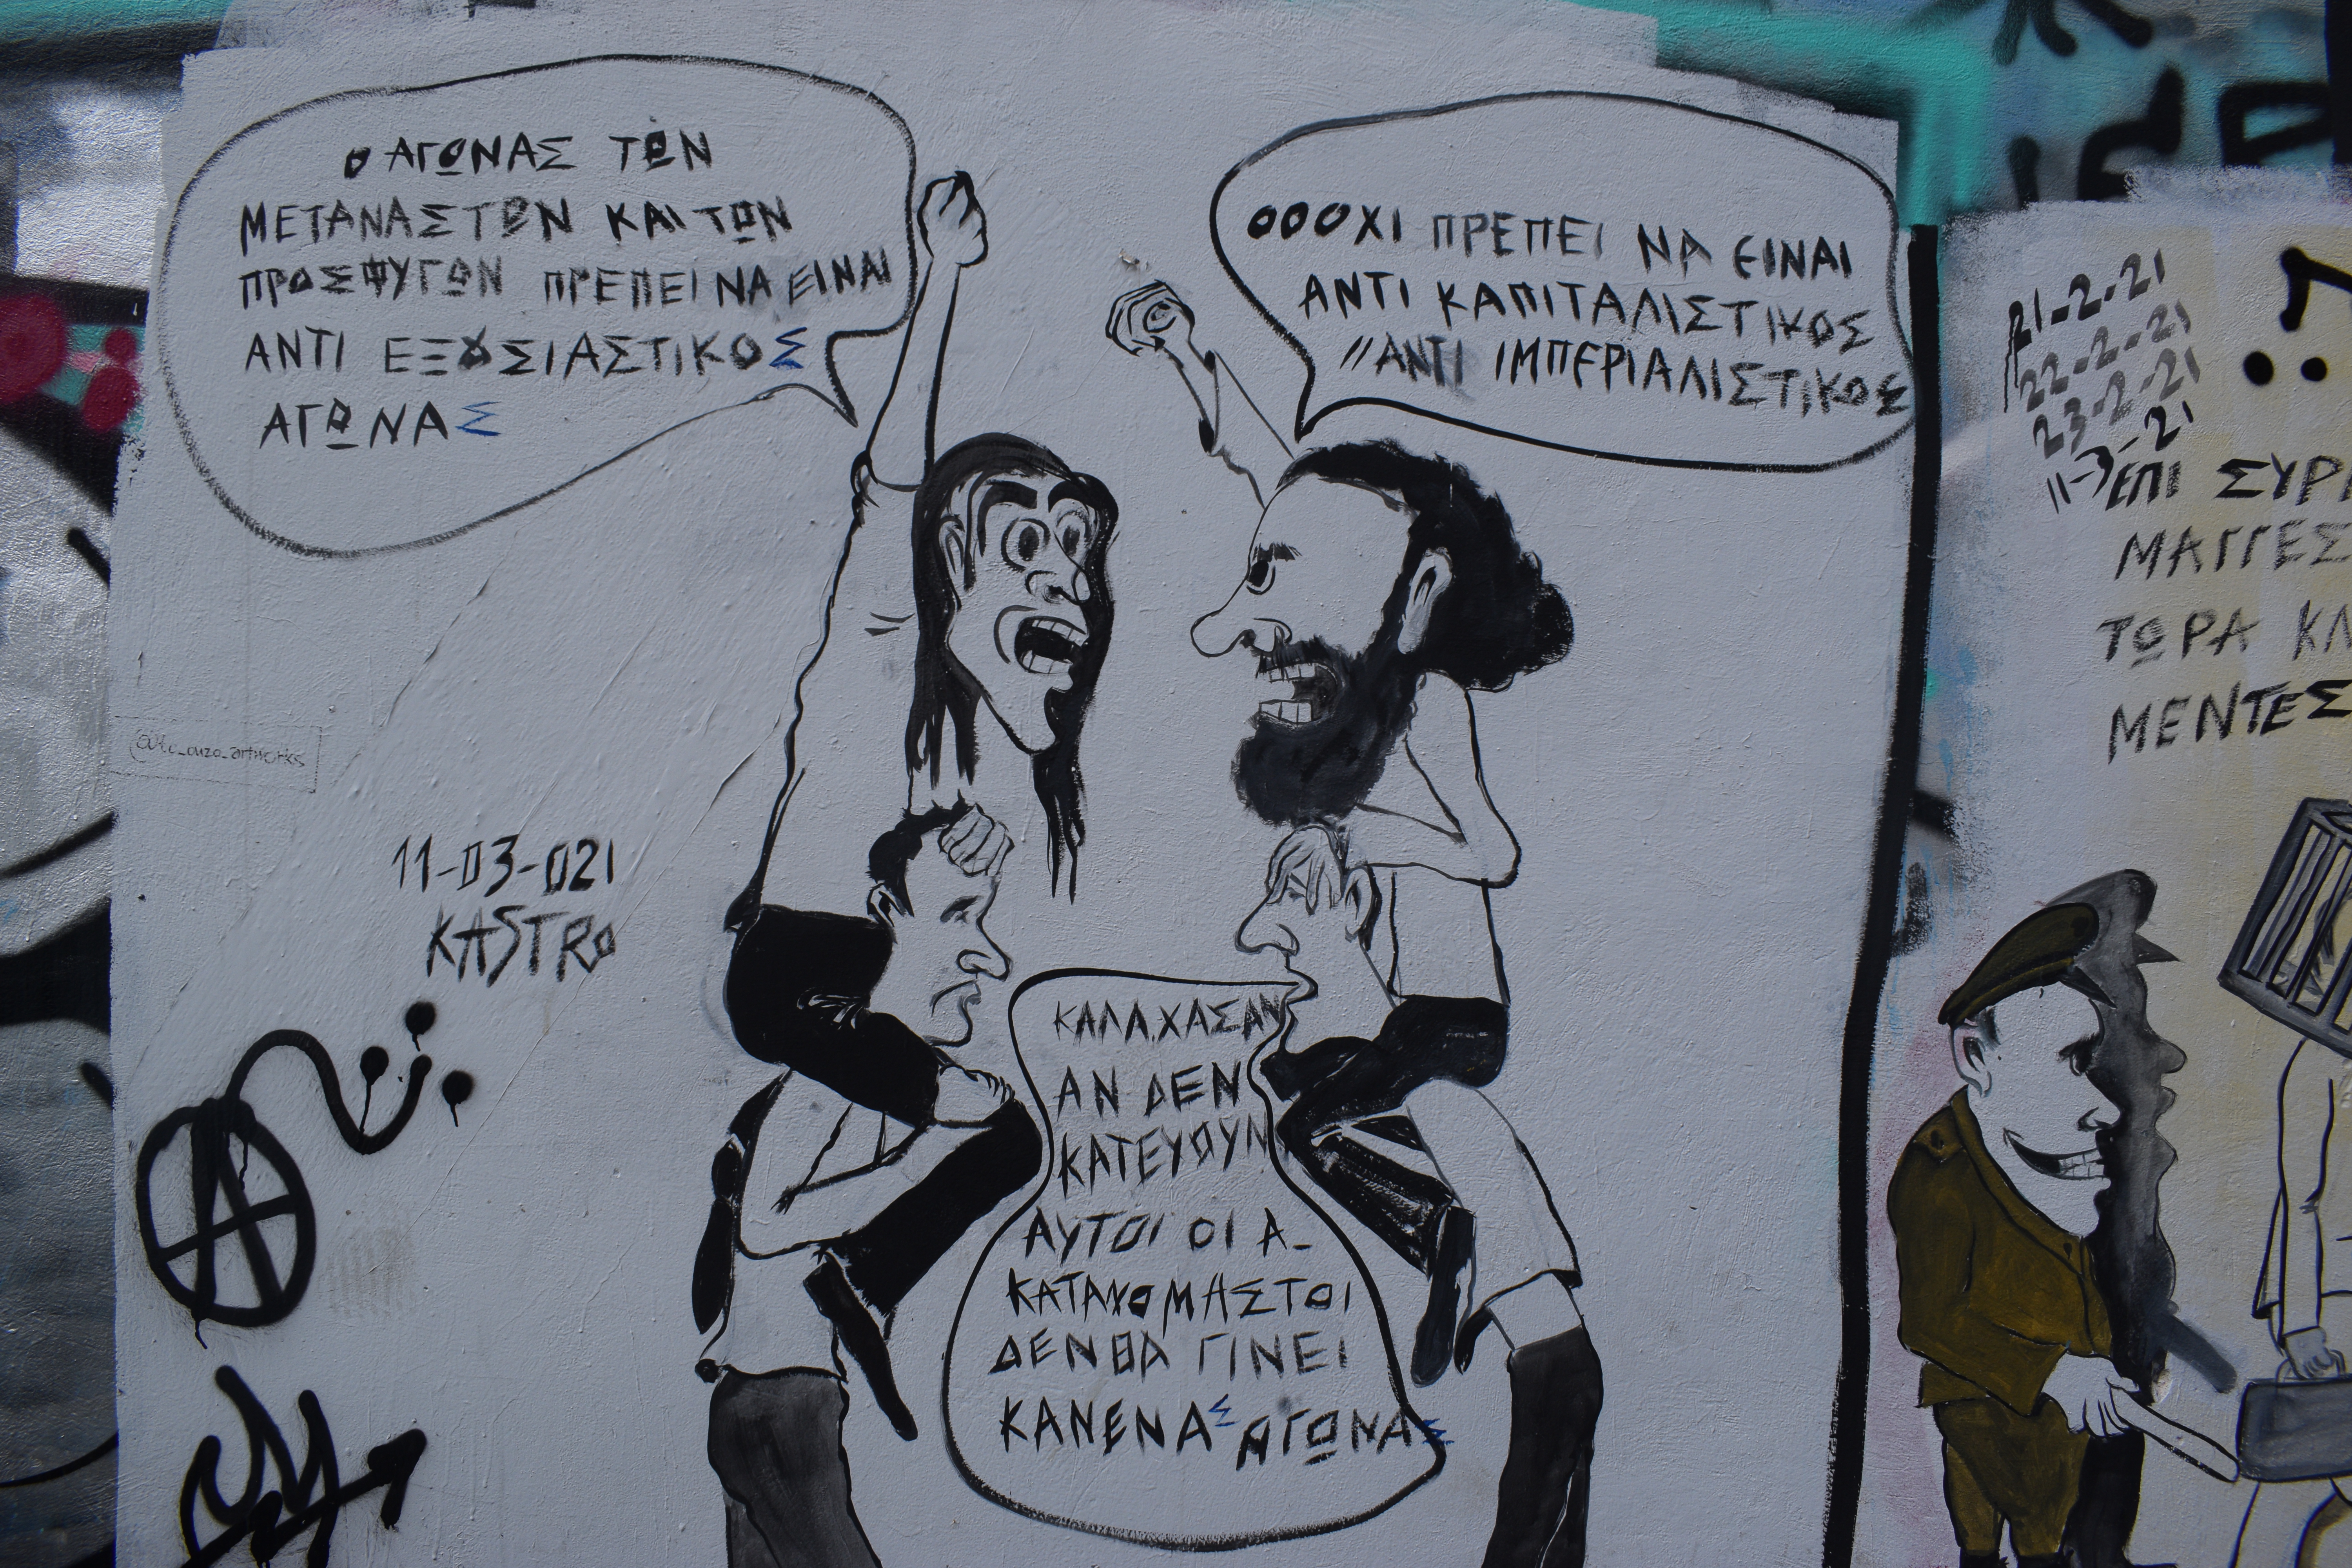 Ο ΑΓΩΝΑΣ ΤΩΝ
ΜΕΤΑΝΑΣΤΩΝ ΚΑΙ ΤΩΝ
ΠΡΟΣΦΥΓΩΝ ΠΡΕΠΕΙ ΝΑ ΕΙΝΑΙ
ΑΝΤΙ ΕΞΟΥΣΙΑΣΤΙΚΟΣ
ΑΓΩΝΑΣ
ΟΟΟΧΙ ΠΡΕΠΕΙ ΝΑ ΕΙΝΑΙ
ΑΝΤΙ ΚΑΠΙΤΑΛΙΣΤΙΚΟΣ
//ΑΝΤΙ ΙΜΠΕΡΙΑΛΙΣΤΙΚΟΣ
ΚΑΛΑ.ΧΑΣΑΝ
ΑΝ ΔΕΝ
ΚΑΤΕΥΘΥΝ
ΑΥΤΟΙ ΟΙ Α-
ΚΑΤΑΝΟΜΗΣΤΟΙ
ΔΕΝ ΘΑ ΓΙΝΕΙ
ΚΑΝΕΝΑΣ ΑΓΩΝΑΣ
11-03-021
KASTRO
21-2-21
22-2-21
23-2-21
11-3-21
ΕΠΙ ΣΥΡ
ΜΑΓΓΕΣ
ΤΩΡΑ ΚΛ
ΜΕΝΤΕΣ